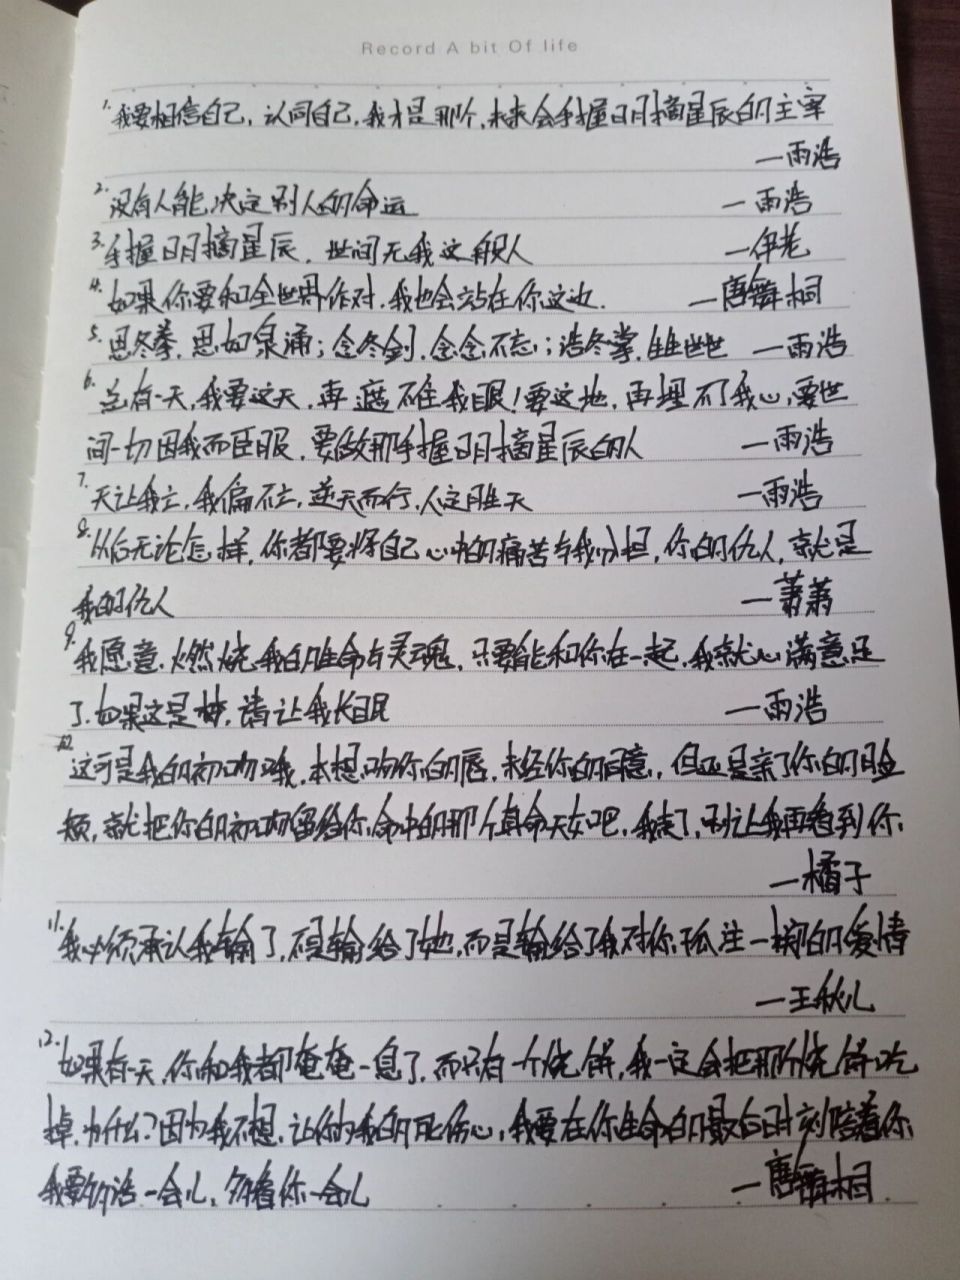 Record A bit Of life
1. 我要相信自己，认同自己，我才是那个，未来会手握日月摘星辰的主宰
—雨浩
2. 没有人能决定别人的命运 —雨浩
3. 手握日月摘星辰，世间无我这般人 —伊老
4. 如果你要和全世界作对，我也会站在你这边. —唐舞桐
5. 思冬拳，思如泉涌；念冬剑，念念不忘；浩冬掌，生生世世 —雨浩
6. 总有一天，我要这天，再遮不住我眼！要这地，再埋不了我心，要世
间一切因我而臣服，要做那手握日月摘星辰的人 —雨浩
7. 天让我亡，我偏不亡，逆天而行，人定胜天 —雨浩
8. 从后无论怎样，你都要将自己心中的痛苦与我分担，你的仇人，就是
我的仇人 —萧萧
9. 我愿意，燃烧我的生命与灵魂，只要能和你在一起，我就心满意足
了，如果这是梦，请让我长眠 —雨浩
10. 这可是我的初吻哦，本想吻你的唇，未经你的同意，但还是亲了你的脸
颊，就把你的初吻留给你命中的那个真命天女吧，我走了，别让我再看到你.
—橘子
11. 我必须承认我输了，不是输给了她，而是输给了我对你孤注一掷的爱情
—王秋儿
12. 如果有一天，你和我都奄奄一息了，而只有一个烧饼，我一定会把那个烧饼吃
掉，为什么？因为我不想，让你为我的死伤心，我要在你生命的最后时刻陪着你
我要多活一会儿，多看你一会儿 —唐舞桐